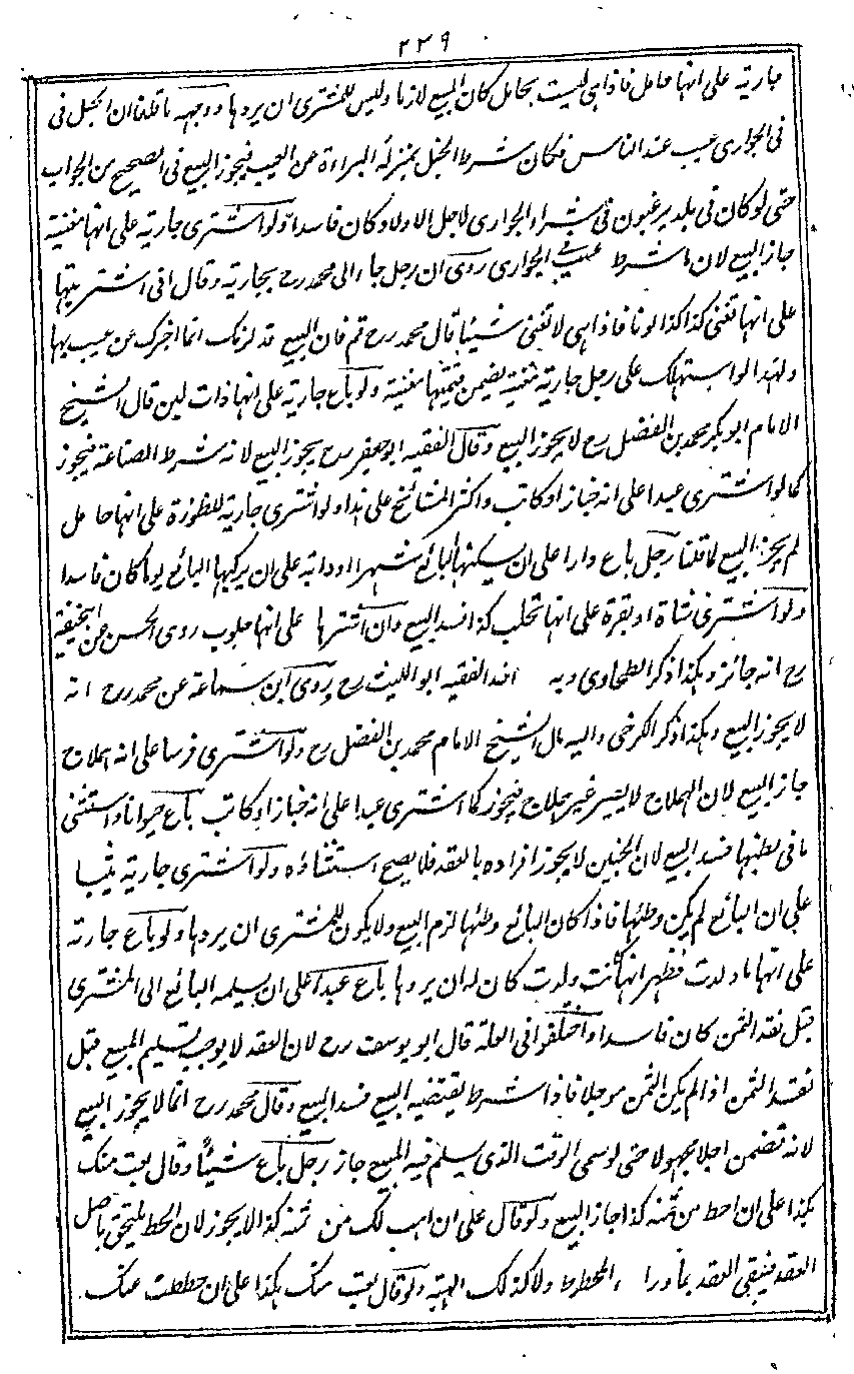 ٢٣٩
جارية على انها حامل فاذا هى ليست بحامل كان البيع لازما وليس للمشترى ان يردها ووجهه ما قلنا ان الحبل فى
فى الجوارى عيب عند الناس فكان شرط الحبل بمنزلة البراءة عن العيب فيجوز البيع فى الصحيح من الجواب
حتى لو كان فى بلد يرغبون فى شراء الجوارى لاجل الاولاد كان فاسدا ولو اشترى جارية على انها مغنية
جاز البيع لان ما شرط عيب فى الجوارى روى ان رجل جاء الى محمد رح بجارية وقال انى اشتريتها
على انها تغنى كذا كذا لونا فاذا هى لا تغنى شيئا قال محمد رح قم فان البيع قد لزمك انما اخبرك عن عيب بها
ولهذا لو استهلك على رجل جارية مغنية يضمن قيمتها غير مغنية ولو باع جارية على انها ذات لبن قال الشيخ
الامام ابو بكر محمد بن الفضل رح لا يجوز البيع وقال الفقيه ابو جعفر رح يجوز البيع لانه شرط الصناعة فيجوز
كما لو اشترى عبدا على انه خباز او كاتب واكثر المشائخ على هذا ولو اشترى جارية للظئورة على انها حامل
لم يجز البيع لما قلنا رجل باع دارا على ان يسكنها البائع شهرا او دابة على ان يركبها البائع يوما كان فاسدا
ولو اشترى شاة او بقرة على انها تحلب كذا فسد البيع وان اشتراها على انها حلوب روى الحسن عن ابيحنيفة
رح انه جائز وهكذا ذكر الطحاوى وبه اخذ الفقيه ابو الليث رح وروى ابن سماعة عن محمد رح انه
لا يجوز البيع وهكذا ذكر الكرخى واليه مال الشيخ الامام محمد بن الفضل رح ولو اشترى فرسا على انه هملاج
جاز البيع لان الهملاج لا يصير غير هملاج فيجوز كما اشترى عبدا على انه خباز او كاتب باع حيوانا واستثنى
ما فى بطنها فسد البيع لان الجنين لا يجوز افراده بالعقد فلا يصح استثناؤه ولو اشترى جارية ثيبا
على ان البائع لم يكن وطئها فاذا كان البائع وطئها لزم البيع ولا يكون للمشترى ان يردها ولو باع جارية
على انها ما ولدت فظهر انها كانت ولدت كان له ان يردها باع عبدا على ان يسلمه البائع الى المشترى
قبل نقد الثمن كان فاسدا واختلفوا فى العلة قال ابو يوسف رح لان العقد لا يوجب تسليم المبيع قبل
نقد الثمن اذا لم يكن الثمن موجلا فاذا شرط يقتضيه البيع فسد البيع وقال محمد رح انما لا يجوز البيع
لانه تضمن اجلا مجهولا حتى لو سمى الوقت الذى يسلم فيه المبيع جاز رجل باع شيئا وقال بعت منك
بكذا على ان احط من ثمنه كذا جاز البيع ولو قال على ان اهب لك من ثمنه كذا لا يجوز لان الحط يلتحق باصل
العقد فيبقى العقد بما وراء المحطوط ولا كذلك الهبة ولو قال بعت منك بكذا على ان حططت عنك